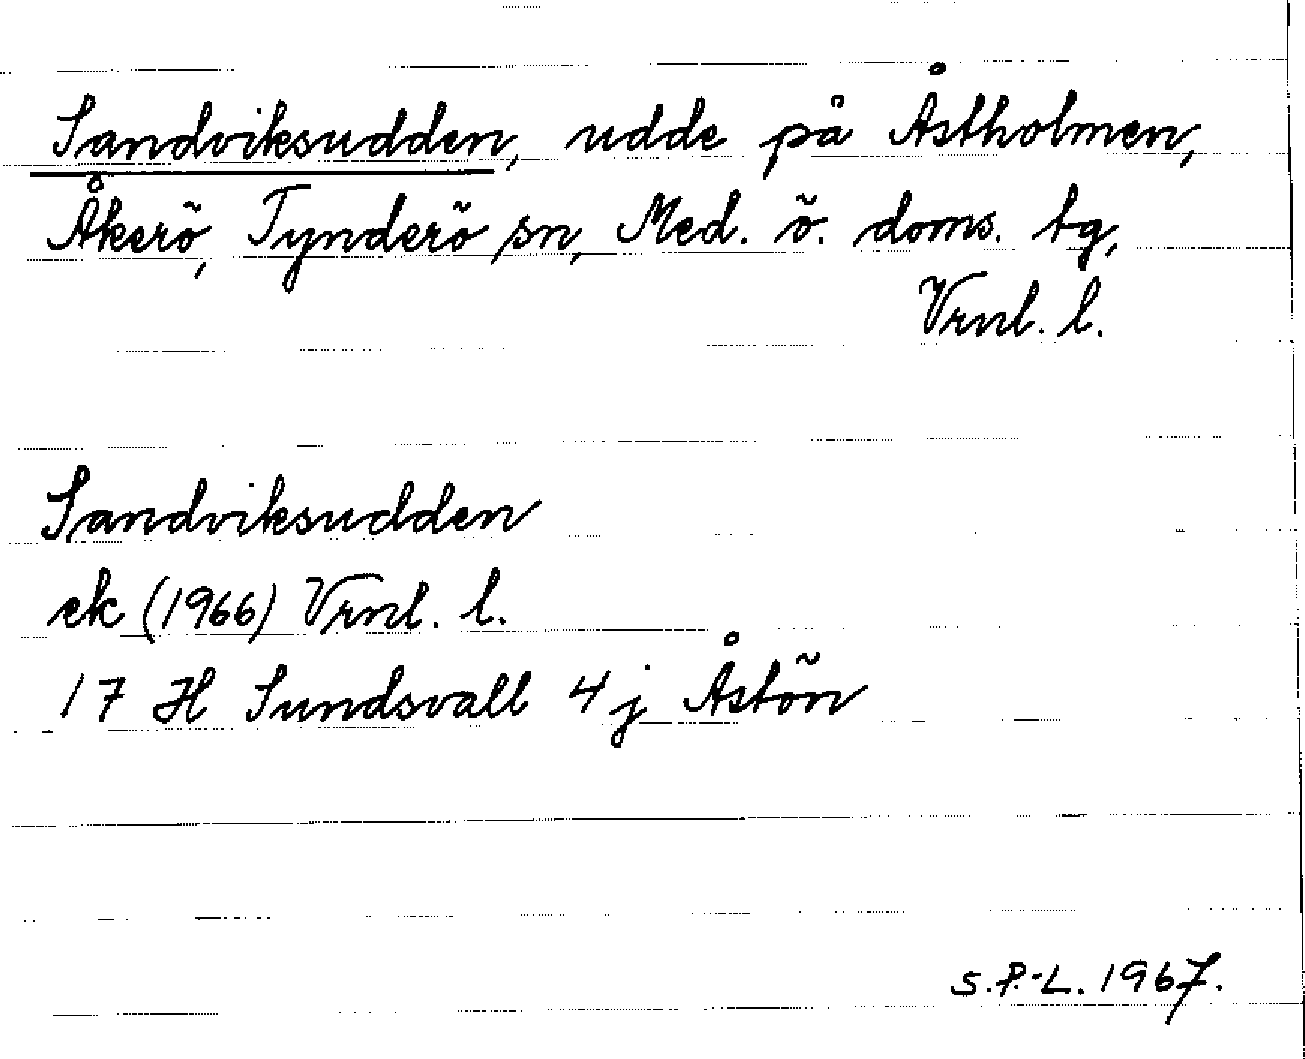 Sandviksudden, udde på Åstholmen,
Åkerö, Tynderö sn, Med. ö. doms. tg,
Vrnl. l.
Sandviksudden
ek (1966) Vrnl. l.
17 H Sundsvall 4 j Åstön
S.P.-L. 1967.